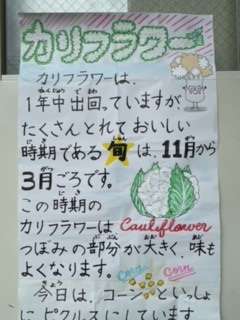 カリフラワー
カリフラワーは、
1年中出回っていますが
たくさんとれておいしい
時期である旬は、11月から
3月ごろです。
この時期の
カリフラワーは Cauliflower
つぼみの部分が大きく味も
よくなります。
corn
今日は、コーンといっしょ
にピクルスにしています